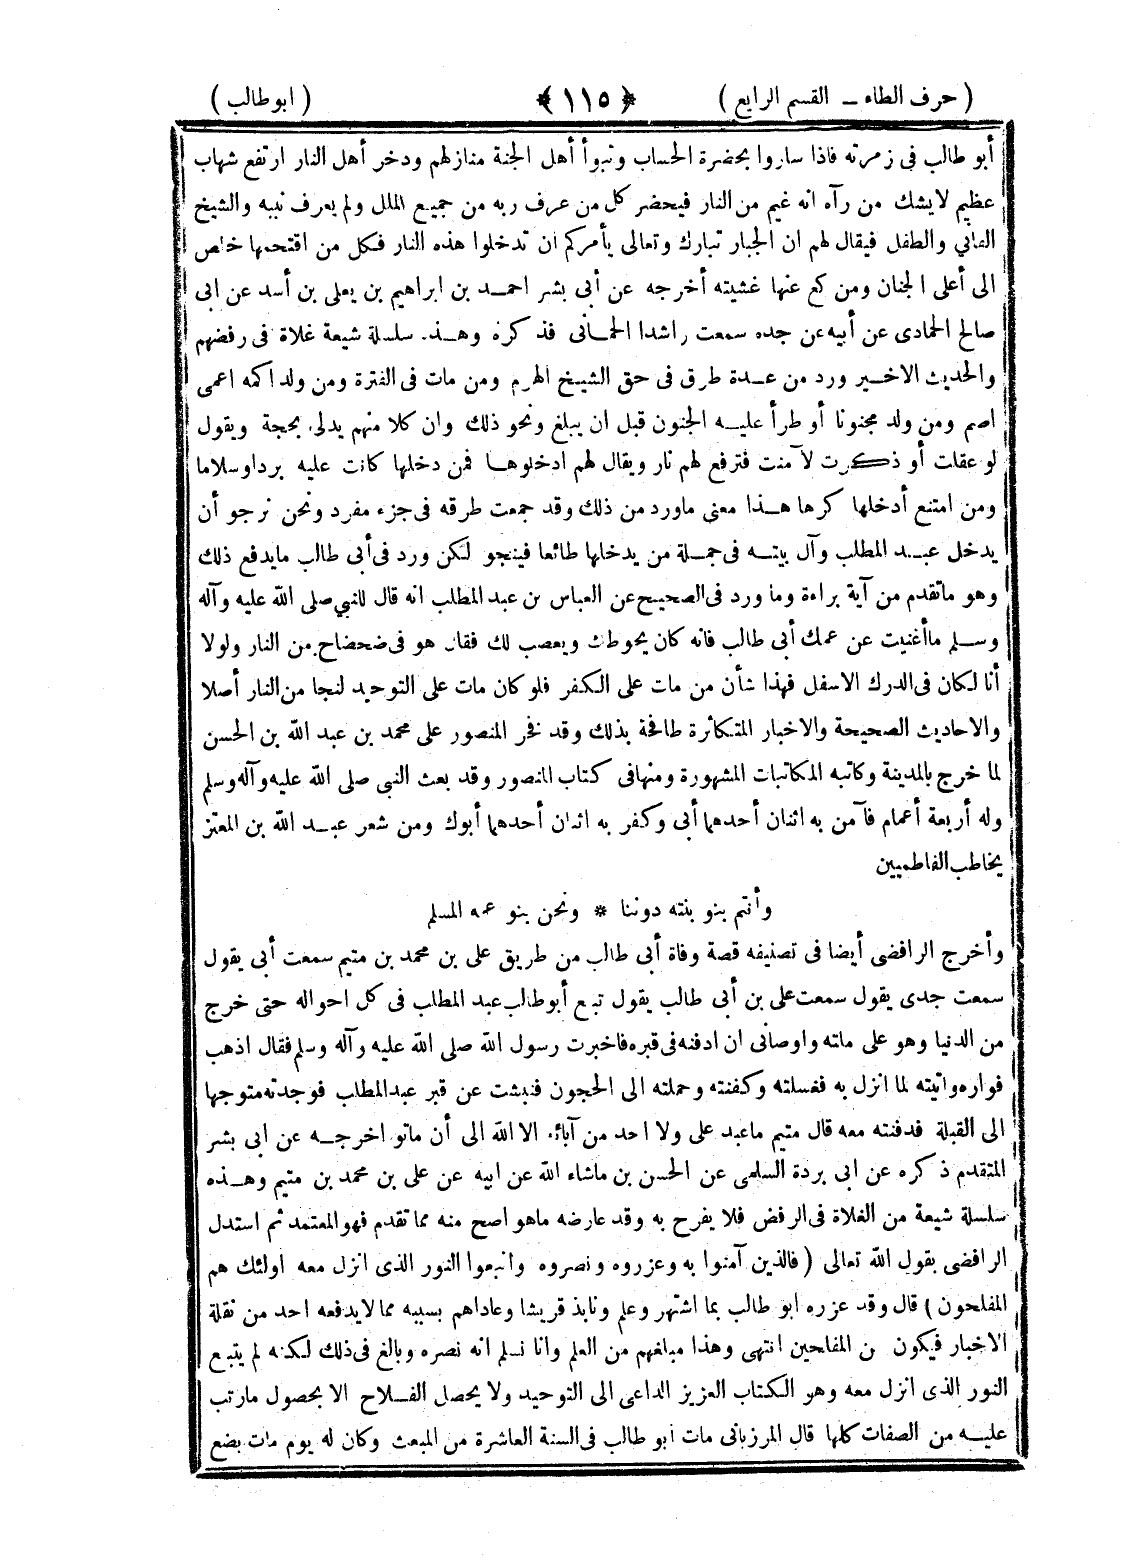 ( حرف الطاء – القسم الرابع ) ﴿ ١١٥ ﴾ ( ابوطالب )
أبو طالب فى زمرته فاذا ساروا بحضرة الحساب وتبوأ أهل الجنة منازلهم ودخر أهل النار ارتفع شهاب
عظيم لايشك من رآه انه غيم من النار فيحضر كل من عرف ربه من جميع الملل ولم يعرف نبيه والشيخ
الفاني والطفل فيقال لهم ان الجبار تبارك وتعالى يأمركم ان تدخلوا هذه النار فكل من اقتحمها خاص
الى أعلى الجنان ومن كع عنها غشيته أخرجه عن أبى بشر احمد بن ابراهيم بن يعلى بن أسد عن ابى
صالح الحمادى عن أبيه عن جده سمعت راشدا الحمانى فذكره وهذ. سلسلة شيعة غلاة فى رفضهم
والحديث الاخير ورد من عدة طرق فى حق الشيخ الهرم ومن مات فى الفترة ومن ولد اكمه اعمى
اصم ومن ولد مجنونا أو طرأ عليه الجنون قبل ان يبلغ ونحو ذلك وان كلا منهم يدلى بحجة ويقول
لو عقلت أو ذكرت لآمنت فترفع لهم نار ويقال لهم ادخلوها فمن دخلها كانت عليه برداوسلاما
ومن امتنع أدخلها كرها هذا معنى ماورد من ذلك وقد جمعت طرقه فى جزء مفرد ونحن نرجو أن
يدخل عبد المطلب وآل بيته فى جملة من يدخلها طائعا فينجو لكن ورد فى أبى طالب مايدفع ذلك
وهو ماتقدم من آية براءة وما ورد فى الصحيح عن العباس بن عبد المطلب انه قال للنبي صلى الله عليه وآله
وسلم ماأغنيت عن عمك أبى طالب فانه كان يحوطك ويغضب لك فقال هو فى ضحضاح من النار ولولا
أنا لكان فى الدرك الاسفل فهذا شأن من مات على الكفر فلو كان مات على التوحيد لنجا من النار أصلا
والاحاديث الصحيحة والاخبار المتكاثرة طافحة بذلك وقد فخر المنصور على محمد بن عبد الله بن الحسن
لما خرج بالمدينة وكاتبه المكاتبات المشهورة ومنهافى كتاب المنصور وقد بعث النبي صلى الله عليه وآله وسلم
وله أربعة أعمام فآمن به اثنان أحدهما أبى وكفر به اثنان أحدهما أبوك ومن شعر عبد الله بن المعتز
يخاطب الفاطميين
وأنتم بنو بنته دوننا * ونحن بنو عمه المسلم
وأخرج الرافضى أيضا فى تصنيفه قصة وفاة أبى طالب من طريق على بن محمد بن متيم سمعت أبى يقول
سمعت جدى يقول سمعت على بن أبى طالب يقول تبع أبوطالب عبد المطلب فى كل احواله حتى خرج
من الدنيا وهو على ملته واوصانى ان ادفنه فى قبره فاخبرت رسول الله صلى الله عليه وآله وسلم فقال اذهب
فواره واتيته لما انزل به فغسلته وكفنته وحملته الى الحجون فنبشت عن قبر عبدالمطلب فوجدته متوجها
الى القبلة فدفنته معه قال متيم ماعبد على ولا احد من آبائه الا الله الى أن ماتوا اخرجه عن ابى بشر
المتقدم ذكره عن ابى بردة السلمى عن الحسن بن ماشاء الله عن ابيه عن على بن محمد بن متيم وهذه
سلسلة شيعة من الغلاة فى الرفض فلا يفرح به وقد عارضه ماهو اصح منه مما تقدم فهو المعتمد ثم استدل
الرافضى بقول الله تعالى ( فالذين آمنوا به وعزروه ونصروه واتبعوا النور الذى انزل معه اولئك هم
المفلحون ) قال وقد عزره ابو طالب بما اشتهر وعلم ونابذ قريشا وعاداهم بسببه مما لايدفعه احد من نقلة
الاخبار فيكون من المفلحين انتهى وهذا مبلغهم من العلم وانا نسلم انه نصره وبالغ فى ذلك لكنه لم يتبع
النور الذى انزل معه وهو الكتاب العزيز الداعى الى التوحيد ولا يحصل الفلاح الا بحصول مارتب
عليه من الصفات كلها قال المرزبانى مات ابو طالب فى السنة العاشرة من المبعث وكان له يوم مات بضع